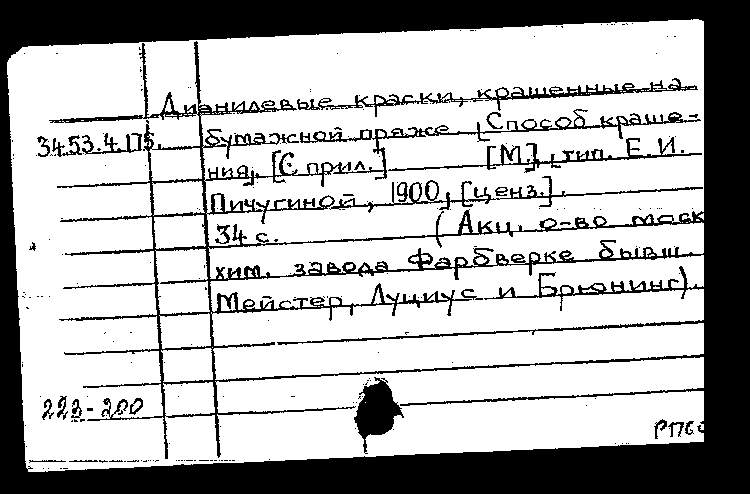 Дианилевые краски, крашенные на
34.53.4.175. бумажной пряже [Способ краше-
ния]. [С прил.] [М.], тип. Е.И.
Пичугиной, 1900, [ценз.].
34 с. (Акц. о-во моск
хим. завода Фарбверке бывш.
Мейстер, Луциус и Брюнинг).
223-200